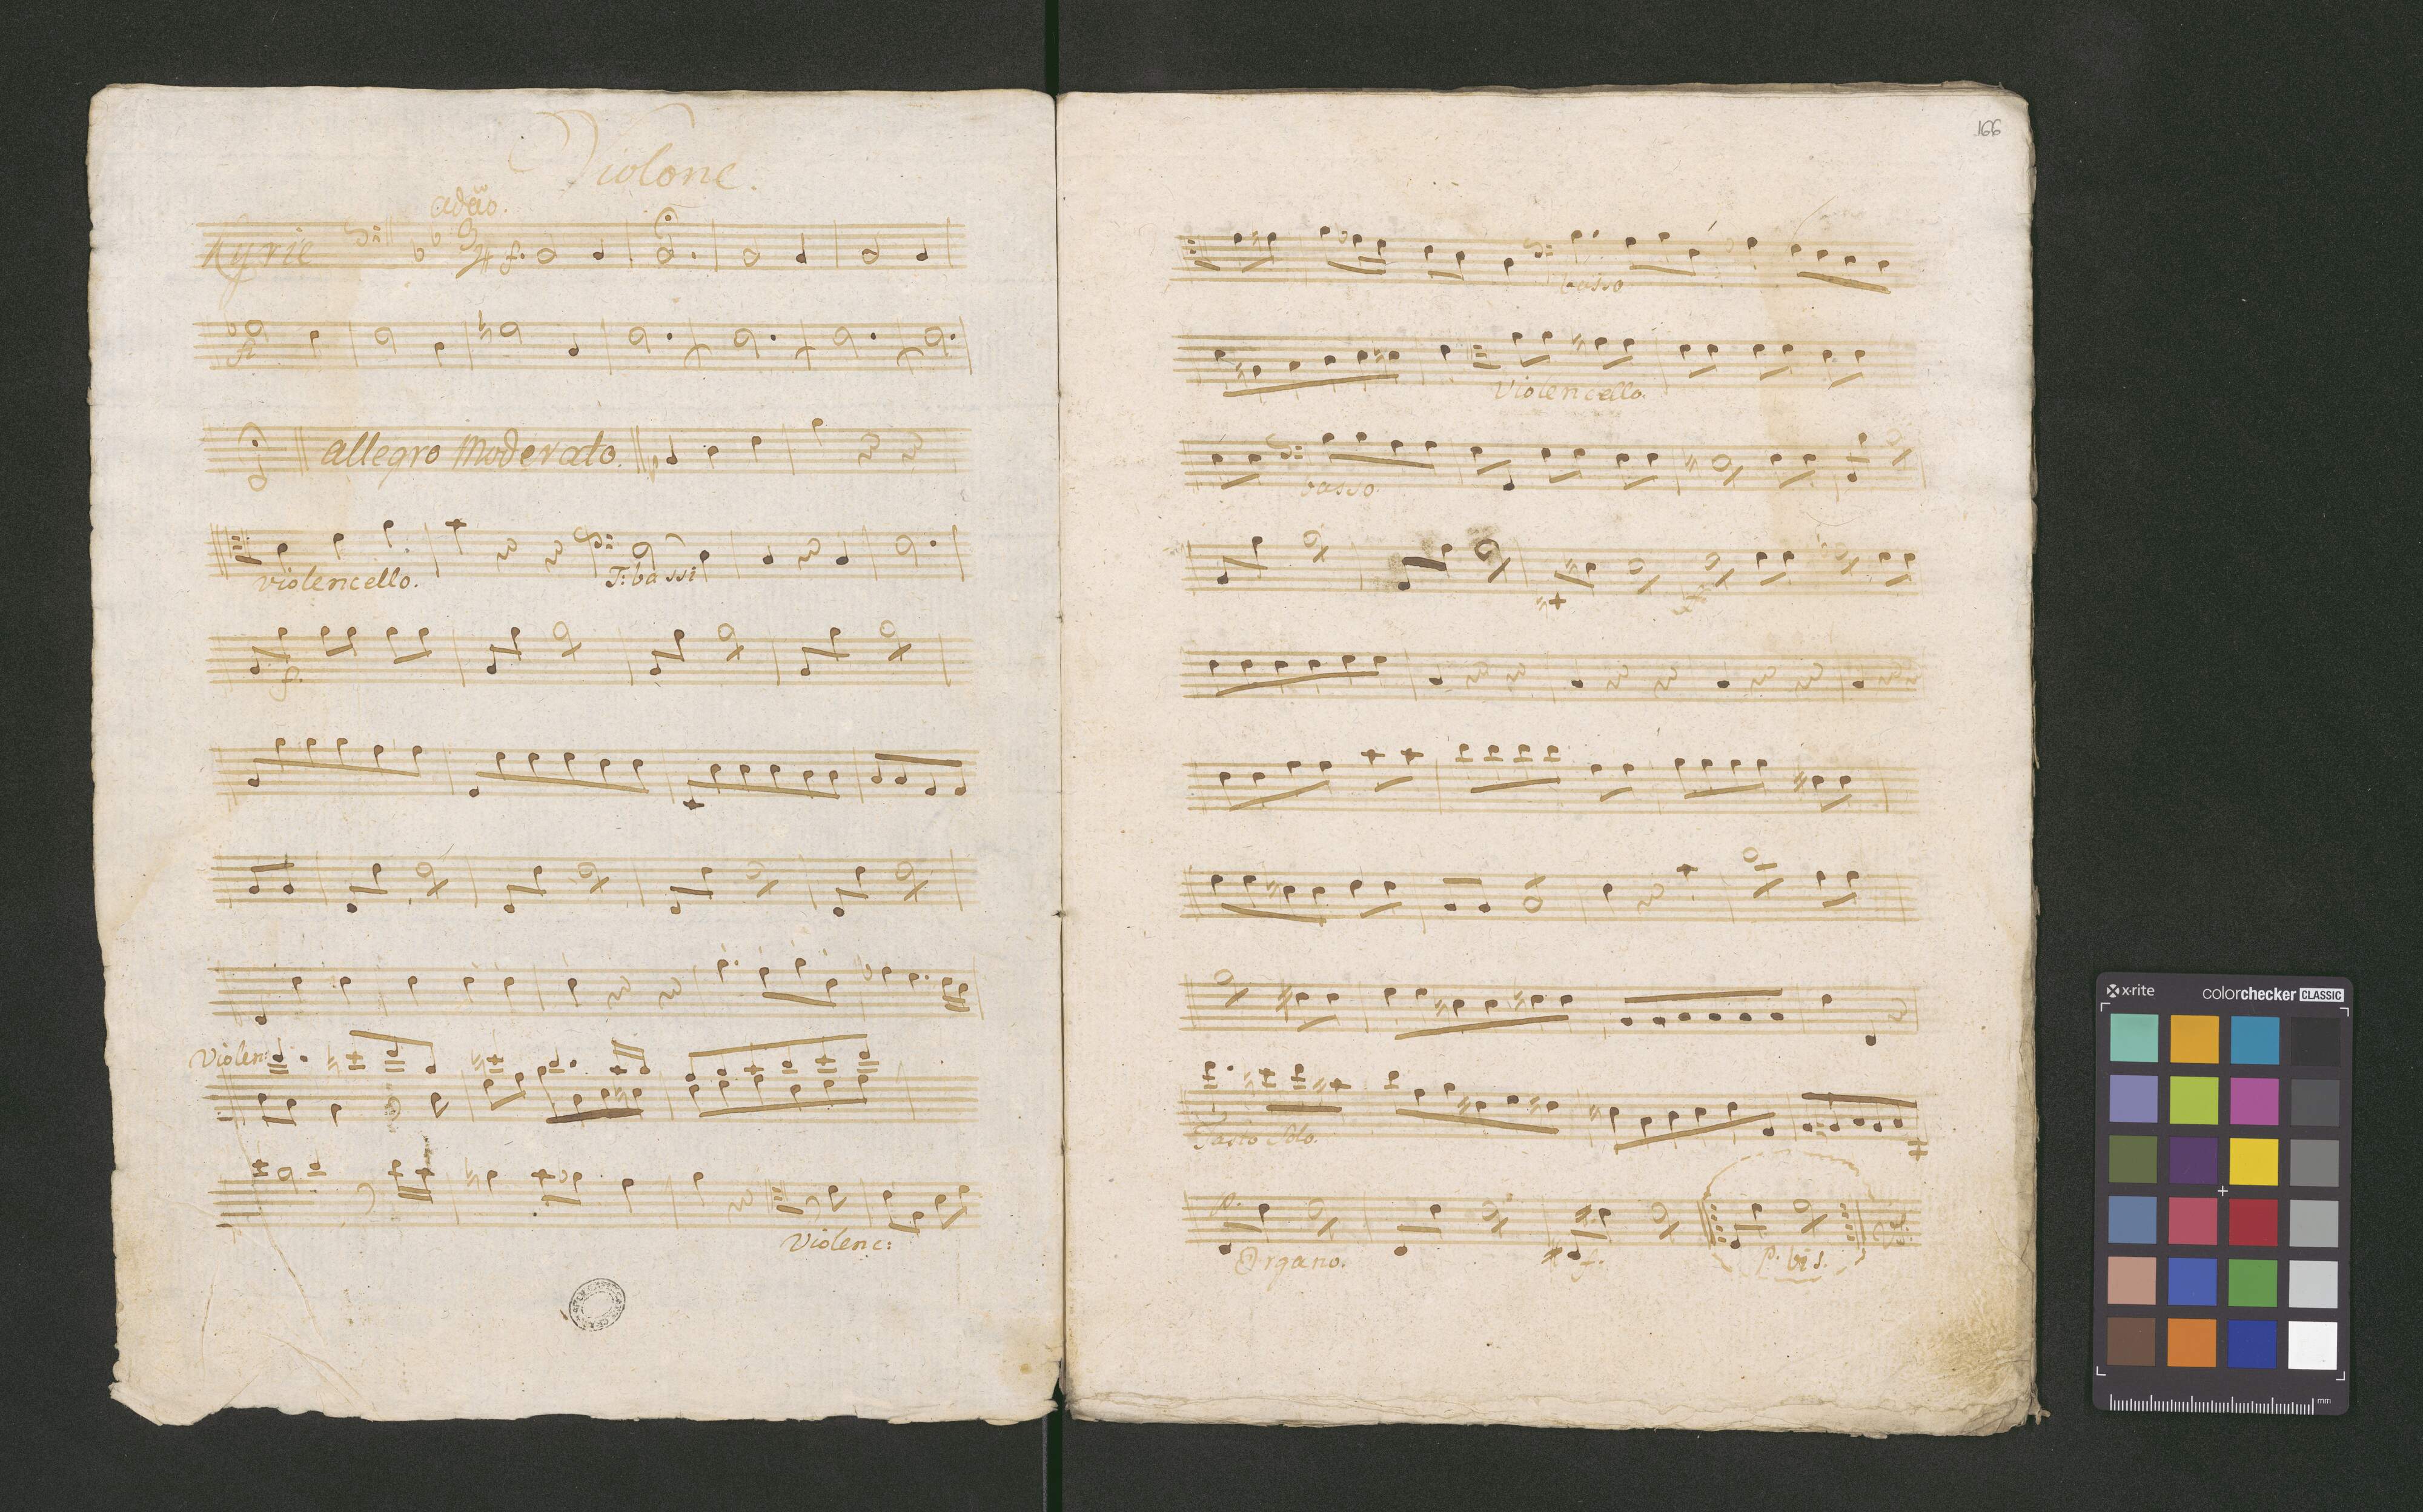 Violone.
adão.
Kyrie
f.
allegro Moderato.
violencello.
T: bassi
Violen:
Violenc:
166
basso
Violencello.
basso.
Tasto Solo.
Organo.
f.
p. bis.
x-rite
colorchecker CLASSIC
mm